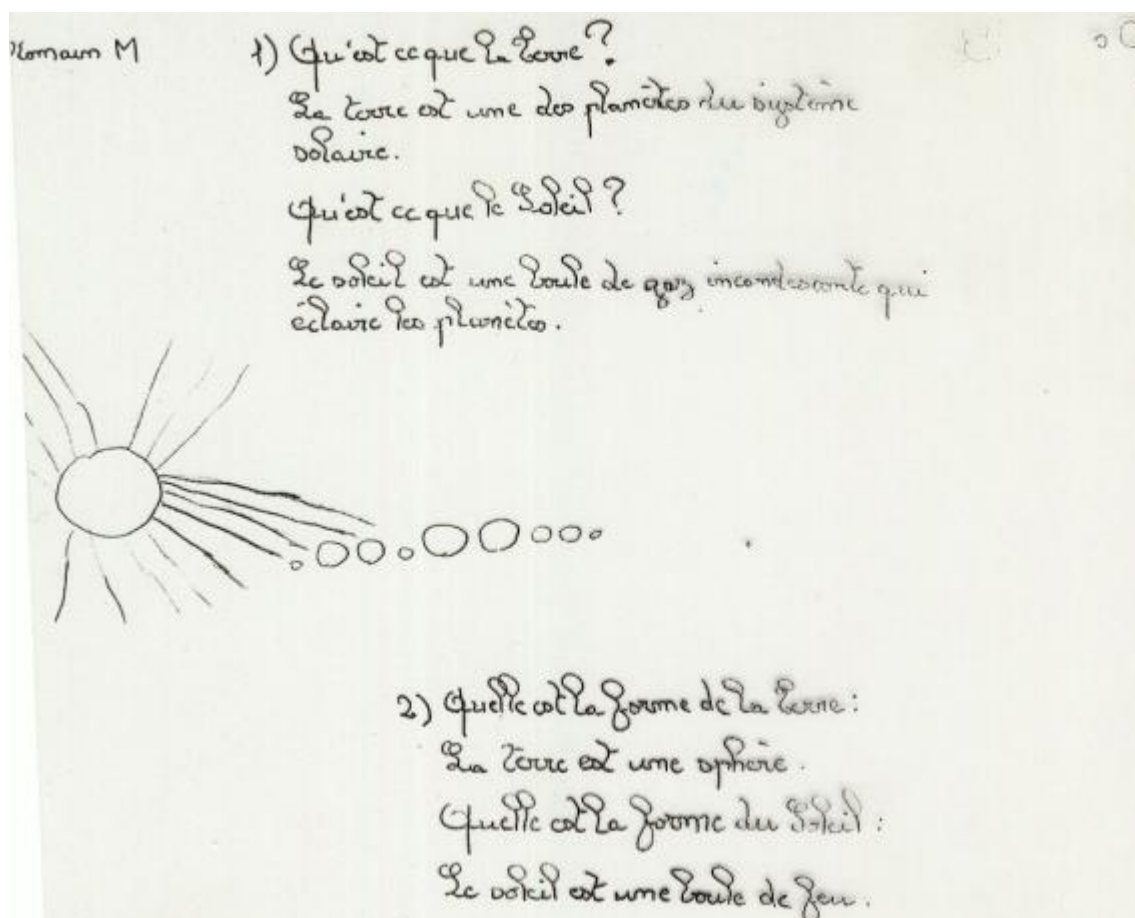 Romain M
1) Qu'est ce que la terre ?
La terre est une des planètes du système
solaire.
Qu'est ce que le Soleil ?
Le soleil est une boule de gaz incandescente qui
éclaire les planètes.
2) Quelle est la forme de la terre :
La terre est une sphère.
Quelle est la forme du Soleil :
Le soleil est une boule de feu.